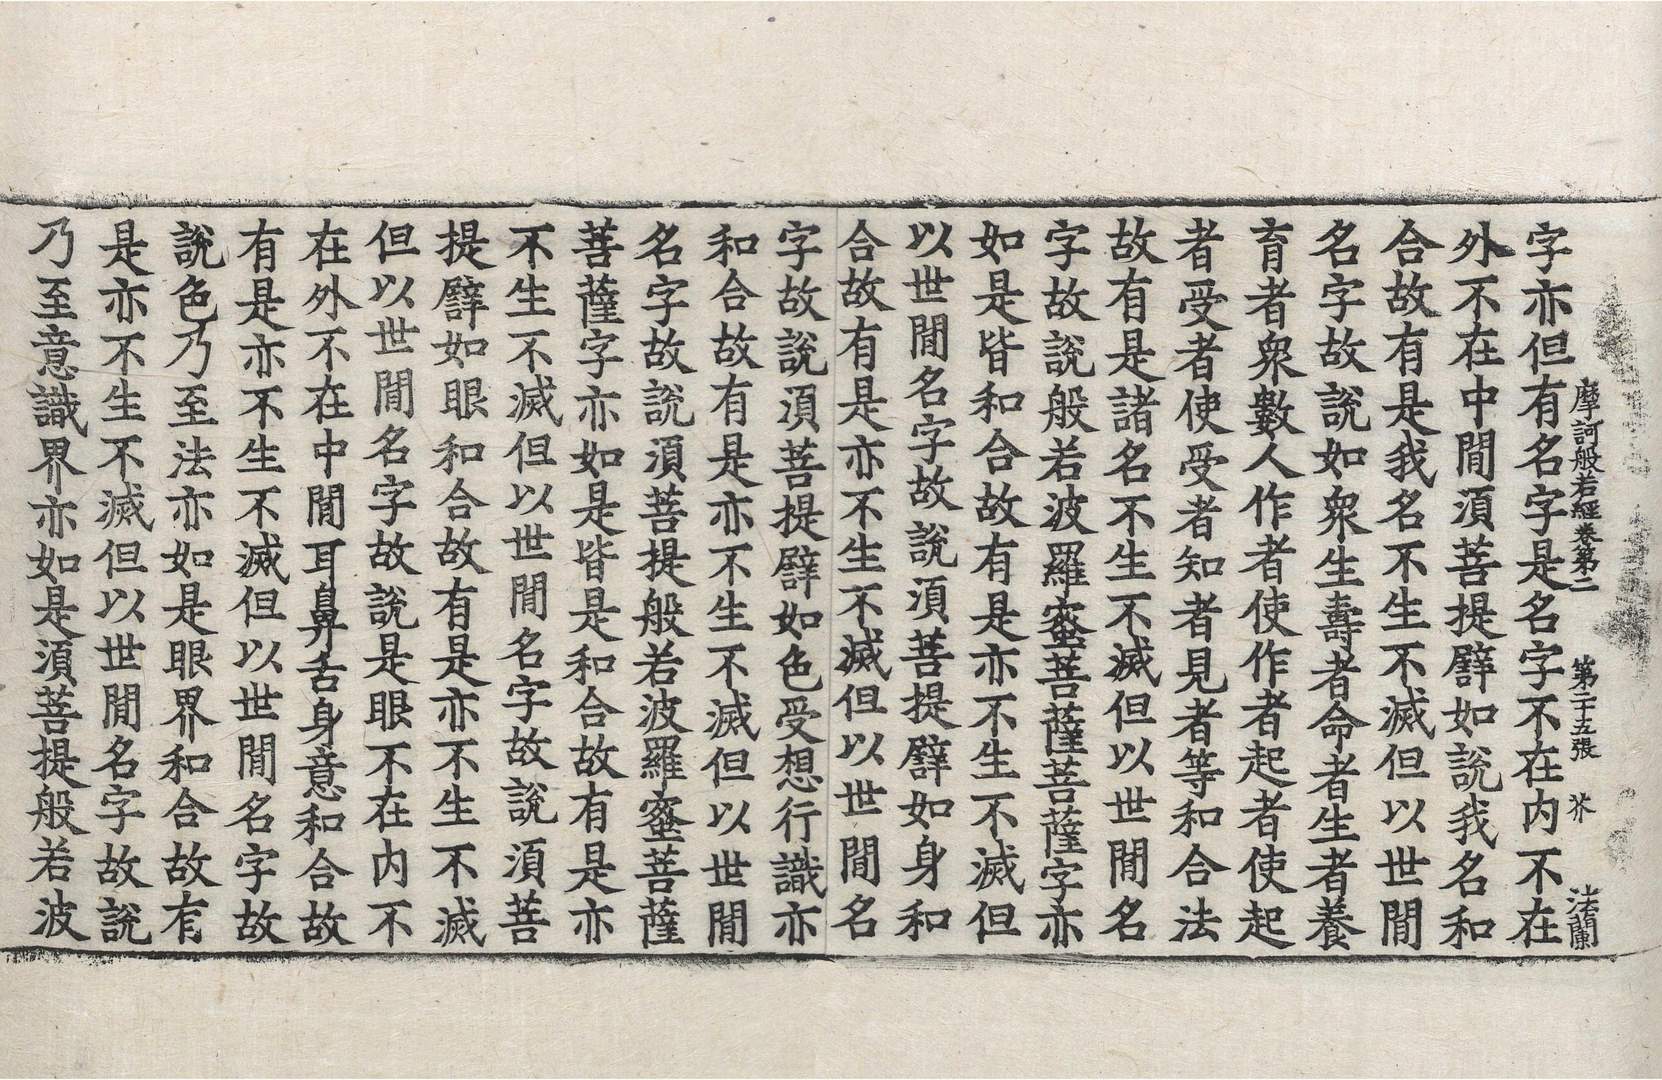 摩訶般若經卷第二　第二十五張　芥　法蘭
字亦但有名字是名字不在内不在
外不在中閒須菩提譬如說我名和
合故有是我名不生不滅但以世閒
名字故說如衆生壽者命者生者養
育者衆數人作者使作者起者使起
者受者使受者知者見者等和合法
故有是諸名不生不滅但以世閒名
字故說般若波羅蜜菩薩菩薩字亦
如是皆和合故有是亦不生不滅但
以世閒名字故說須菩提譬如身和
合故有是亦不生不滅但以世閒名
字故說須菩提譬如色受想行識亦
和合故有是亦不生不滅但以世閒
名字故說須菩提般若波羅蜜菩薩
菩薩字亦如是皆是和合故有是亦
不生不滅但以世閒名字故說須菩
提譬如眼和合故有是亦不生不滅
但以世閒名字故說是眼不在内不
在外不在中閒耳鼻舌身意和合故
有是亦不生不滅但以世閒名字故
說色乃至法亦如是眼界和合故有
是亦不生不滅但以世閒名字故說
乃至意識界亦如是須菩提般若波